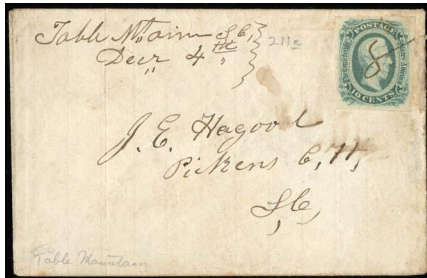 Table Mtain S.C,
Decr 4th
211a
8
POSTAGE
10 CENTS
J. E. Hagood
Pickens C, H,
S, C,
Table Mountain